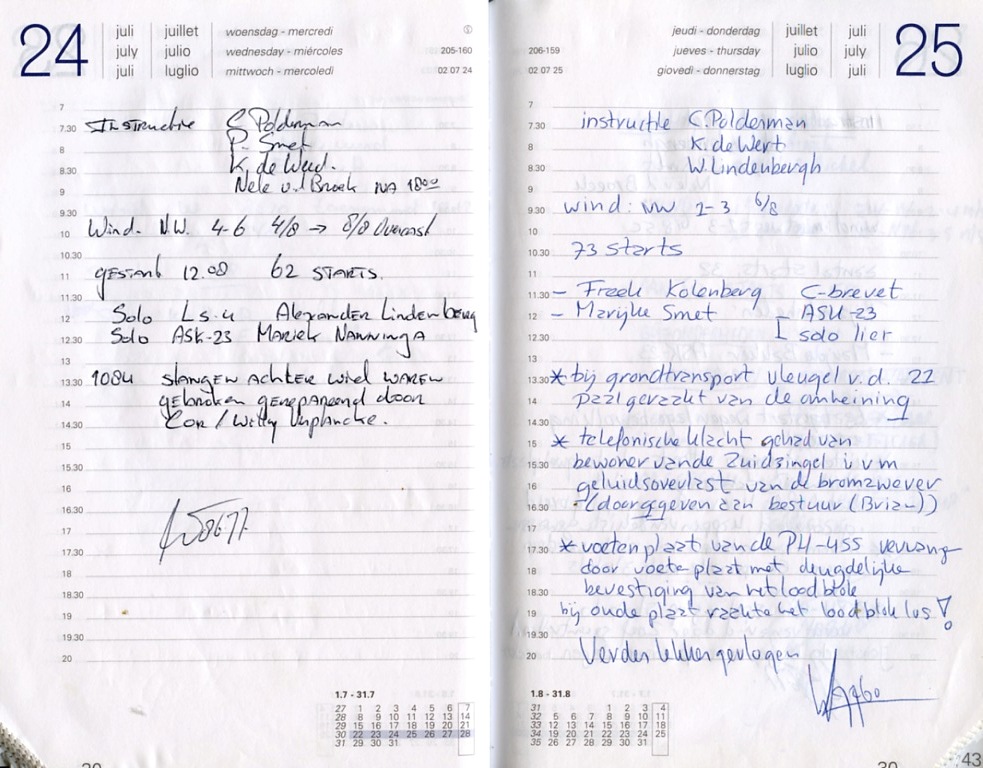 24
juli juillet woensdag - mercredi
july julio wednesday - miércoles 205-160
juli luglio mittwoch - mercoledì 02 07 24
7
7.30 Instructie C. Polderman
8 P. Smet
8.30 K. de Werd.
9 Nele v.d Broek NA 1800
9.30
10 Wind. N.W. 4-6 4/8 → 8/8 Overcast
10.30
11 gestart 12.00 62 STARTS.
11.30
12 Solo Ls-4 Alexander Lindenberg
12.30 Solo ASK-23 Mariek Nanninga
13
13.30 1084 slangen achter wiel waren
14 gebroken gerepareerd door
14.30 Cor / Willy
15
15.30
16
16.30
17
17.30
18
18.30
19
19.30
20
1.7 - 31.7
27 1 2 3 4 5 6 7
28 8 9 10 11 12 13 14
29 15 16 17 18 19 20 21
30 22 23 24 25 26 27 28
31 29 30 31
jeudi - donderdag juillet juli
206-159 jueves - thursday julio july
02 07 25 giovedì - donnerstag luglio juli
25
7
7.30 instructie C. Polderman
8 K. de Wert
8.30 W. Lindenbergh
9
9.30 wind: nw 2-3 6/8
10
10.30 73 starts
11
11.30 - Freek Kolenberg C-brevet
12 - Marijke Smet - ASK-23
12.30 solo lier
13
13.30 * bij grondtransport vleugel v.d. 21
14 paal geraakt van de omheining
14.30
15 * telefonische klacht gehad van
15.30 bewoner van de Zuidsingel i v m
16 geluidsoverlast van de bromzwever
16.30 - (doorgegeven aan bestuur (Brian))
17
17.30 * voetenplaat van de PH-455 vervang
18 door voeteplaat met deugdelijke
18.30 bevestiging van het loodblok
19 bij oude plaat raakte het loodblok los!
19.30
20 Verder lekker gevlogen
1.8 - 31.8
31 1 2 3 4
32 5 6 7 8 9 10 11
33 12 13 14 15 16 17 18
34 19 20 21 22 23 24 25
35 26 27 28 29 30 31
43